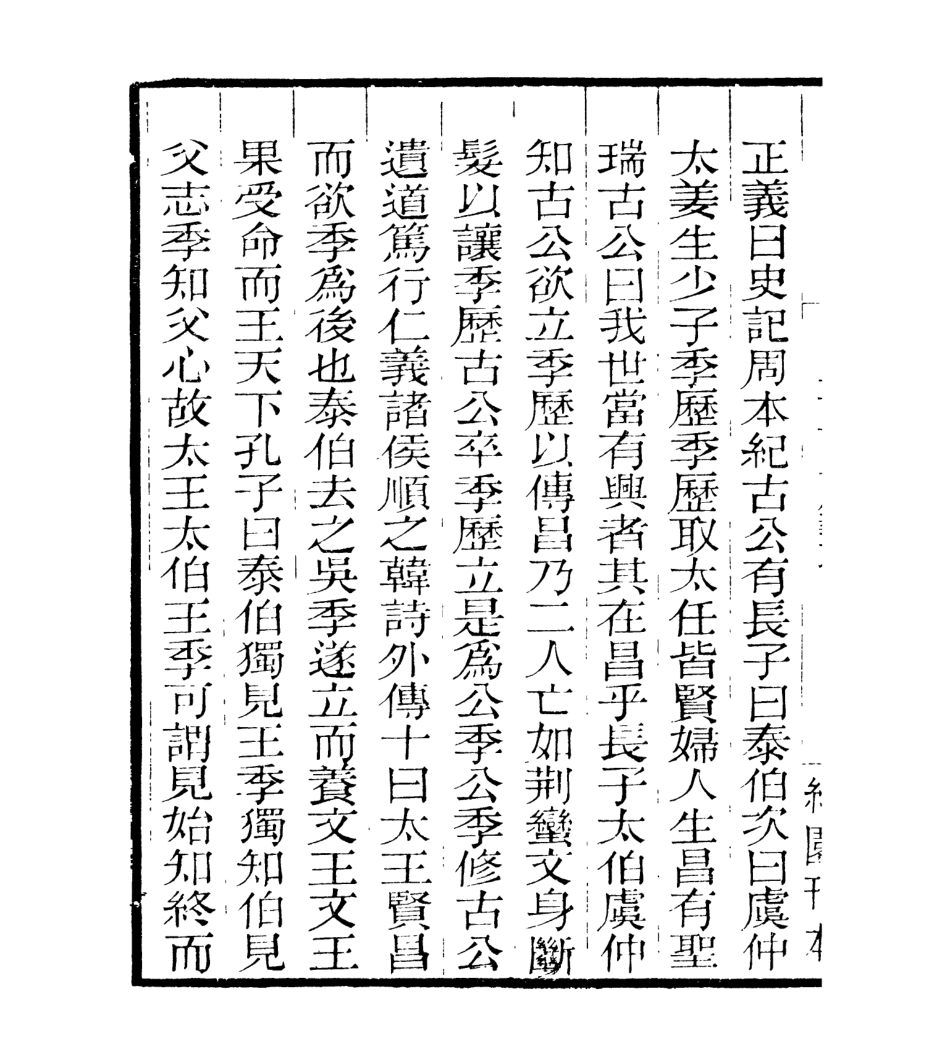 正義曰史記周本紀古公有長子曰泰伯次曰虞仲
太姜生少子季歷季歷取太任皆賢婦人生昌有聖
瑞古公曰我世當有興者其在昌乎長子太伯虞仲
知古公欲立季歷以傳昌乃二人亡如荆蠻文身斷
髮以讓季歷古公卒季歷立是爲公季公季修古公
遺道篤行仁義諸侯順之韓詩外傳十曰太王賢昌
而欲季爲後也泰伯去之吳季遂立而養文王文王
果受命而王天下孔子曰泰伯獨見王季獨知伯見
父志季知父心故太王太伯王季可謂見始知終而
刊本